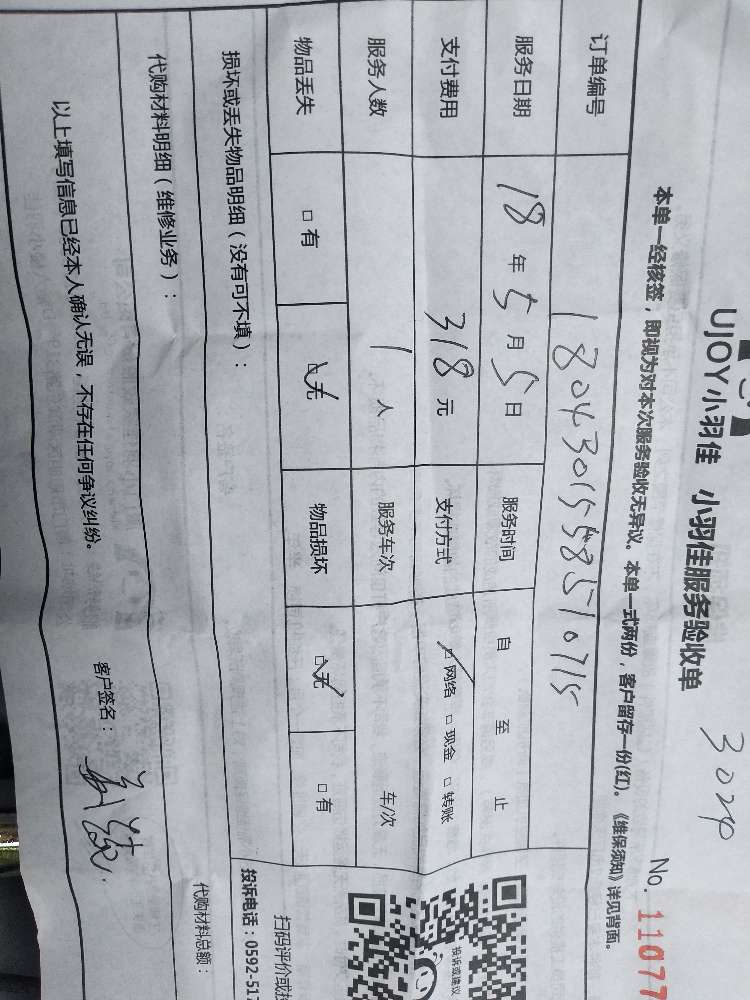 UJOY小羽佳 小羽佳服务验收单
No. 11077
本单一经核签，即视为对本次服务验收无异议。本单一式两份，客户留存一份(红)。《维保须知》详见背面。
订单编号 1804301558510715
服务日期 18年5月5日 服务时间 自 至 止
支付费用 318元 支付方式 □网络 □现金 □转账
服务人数 1人 服务车次 车/次
物品丢失 □有 □无 物品损坏 □无 □有
损坏或丢失物品明细（没有可不填）：
代购材料明细（维修业务）：
代购材料总额：
以上填写信息已经本人确认无误，不存在任何争议纠纷。 客户签名：
投诉或建议
扫码评价或投
投诉电话：0592-517